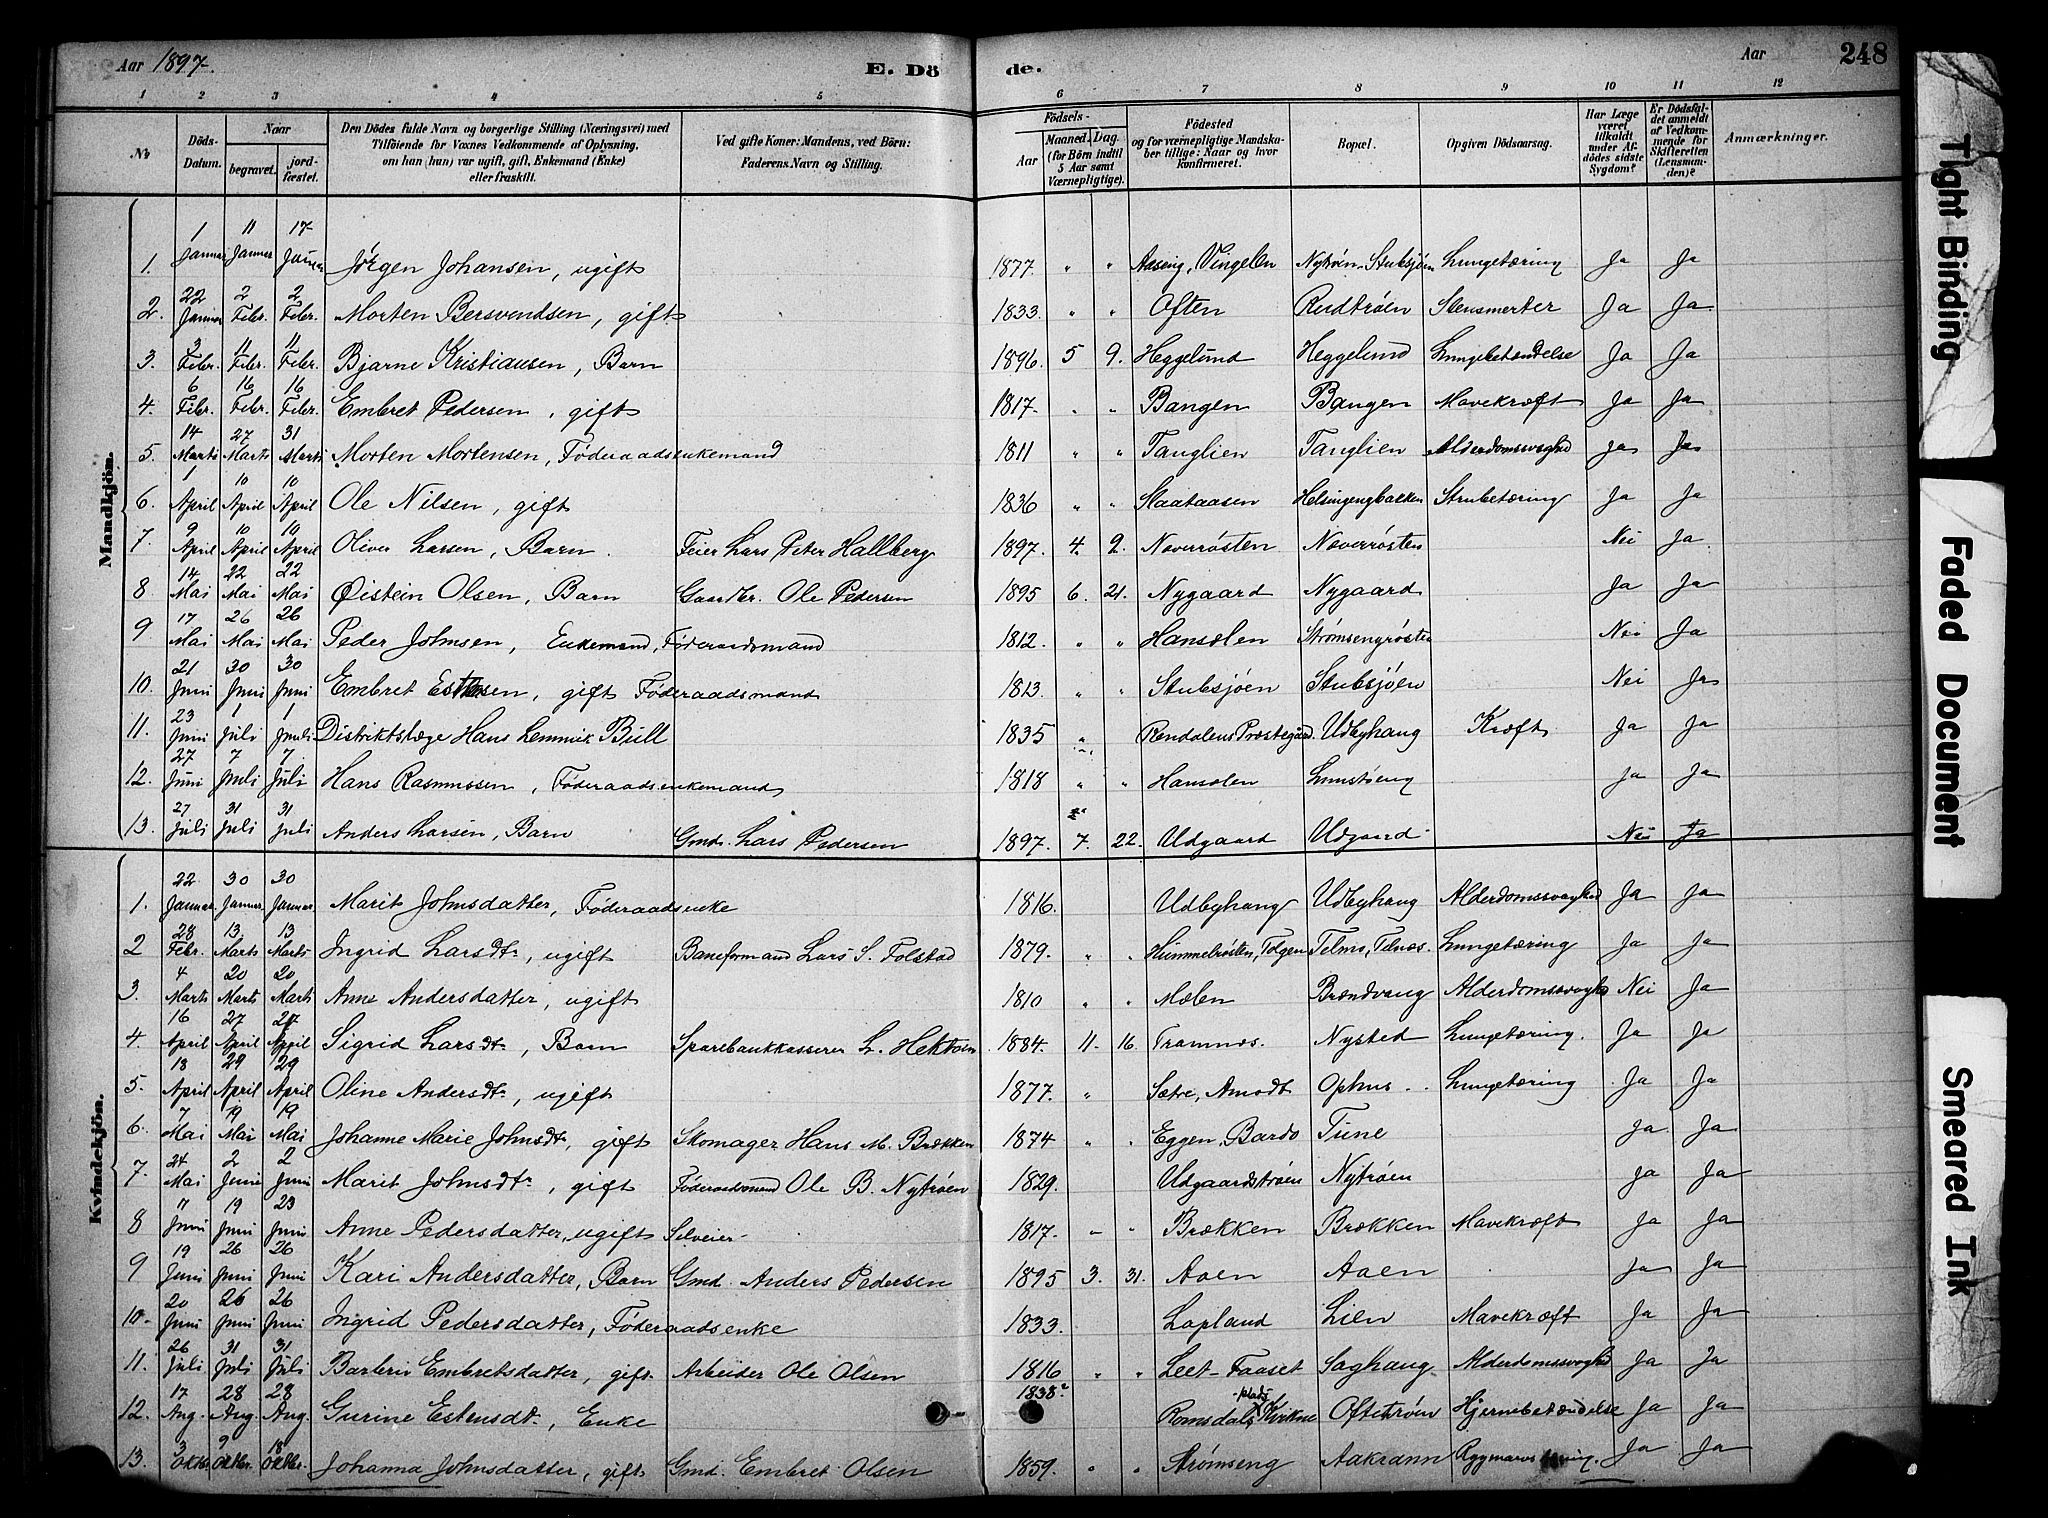 Aar 1897. E. Dö de. Aar 248
1 2 3 4 5 6 7 8 9 10 11 12
No. Döds-Datum. Naar begravet. jordfæstet. Den Dödes fulde Navn og borgerlige Stilling (Næringsvei) med Tilföiende for Voxnes Vedkommende af Oplysning, om han (hun) var ugift, gift, Enkemand (Enke) eller fraskilt. Ved gifte Koner: Mandens, ved Börn: Faderens Navn og Stilling. Födsels- Aar Maaned. Dag. (for Börn indtil 5 Aar samt Værnepligtige). Födested og for værnepligtige Mandskaber tillige: Naar og hvor konfirmeret. Bopæl. Opgiven Dödsaarsag. Har Læge været tilkaldt under Afdödes sidste Sygdom? Er Dödsfaldet anmeldt af Vedkommende for Skifteretten (Lensmanden)? Anmærkninger.
Mandkjön.
1. 1 Januar 11 Januar 17 Januar Jörgen Johansen, ugift 1877. " " Aaseng, Vingelen Nytrøen Stubsjøen Lungetæring Ja Ja
2. 22 Januar 2 Febr. 2 Febr. Morten Bersvendsen, gift 1833. " " Often Rudtrøen Stensmerter Ja Ja
3. 3 Febr. 11 Febr. 11 Febr. Bjarne Kristiansen, Barn 1896. 5 9. Heggelund Heggelund Lungebetændelse Ja Ja
4. 6 Febr. 16 Febr. 16 Febr. Embret Pedersen, gift 1817. " " Bangen Bangen Mavekræft Ja Ja
5. 14 Marts 27 Marts 31 Marts Morten Mortensen, Føderaadsenkemand 1811 " " Tanglien Tanglien Alderdomssvaghed Ja Ja
6. 1 April 10 April 10 April Ole Nilsen, gift 1836 " " Slaataasen Helsingengbakken Strubetæring Ja Ja
7. 9 April 10 April 10 April Oliver Larsen, Barn. Feier Lars Peter Hallberg 1897. 4. 2. Noverrøsten Noverrøsten Nei Ja
8 14 Mai 22 Mai 22 Mai Øistein Olsen, Barn Gaardbr. Ole Pedersen 1895 6. 21. Nygaard Nygaard Ja Ja
9 17 Mai 26 Mai 26 Mai Peder Johnsen, Enkemand, Føderaadsmand 1812. " " Hansølen Strømsengrøsten Nei Ja
10. 21 Juni 30 Juni 30 Juni Embret Estensen, gift Føderaadsmand 1813. " " Stubsjøen Stubsjøen Nei Ja
11. 23 Juni 1 Juli 1 Juli Distriktslæge Hans Lemmik Bull 1835 " Rendalens Præstegård. Udbyhaug Kræft Ja Ja
12. 27 Juni 7 Juli 7 Juli Hans Rasmussen, Føderaadsenkemand 1818 " " Hansølen Lunstøeng Ja Ja
13. 27 Juli 31 Juli 31 Juli Anders Larsen, Barn Gmd. Lars Pedersen 1897. 7. 22. Udgaard Udgaard Nei Ja
Kvindekjön.
1. 22 Januar. 30 Januar. 30 Januar Marit Johnsdatter, Føderaadsenke 1816. Udbyhaug Udbyhaug Alderdomssvaghed Ja Ja
2 28 Febr. 13 Marts 13 Marts Ingrid Larsdtr, ugift Baneformand Lars S. Tolstad 1879. " " Hummelrøsten, Tolgen Telmo, Telnæs. Lungetæring Ja Ja
3. 4 Marts 20 Marts 20 Marts Anne Andersdatter, ugift 1810 " " Mælen Brændvang Alderdomssvaghed Nei Ja
4. 16 April 27 April 27 April Sigrid Larsdtr, Barn Sparebankkasserer L. Hektoen 1884. 11. 16. Tramnæs. Nysted Lungetæring. Ja Ja
5. 18 April 29 April 29 April Oline Andersdtr, ugift 1877. " Sætre, Amodt Ophus Lungetæring Ja Ja
6. 7 Mai 19 Mai 19 Mai Johanne Marie Johnsdtr, gift Skomager Hans M. Brækken 1874 " " Eggen, Bardo Tune Ja Ja
7. 24 Mai 2 Juni 2 Juni Marit Johnsdtr, gift Føderaadsmand Ole B. Nytrøen 1829. Udgaardstrøen Nytrøen Ja Ja
8 7 Juni 19 Juni 23 Juni Anne Pedersdatter, ugift Selveier 1817. " " Brækken Brækken Mavekræft Ja Ja
9 19 Juni 26 Juni 26 Juni Kari Andersdatter, Barn Gmd. Anders Pedersen 1895 3. 31. Aaen Aaen Ja Ja
10. 20 Juni 26 Juni 26 Juni Ingrid Pedersdatter, Føderaadsenke 1833. Lapland Lien Mavekræft Ja Ja
11. 26 Juli 31 Juli 31 Juli Barbru Embretsdatter, gift Arbeider Ole Olsen 1816 " " Leet-Faaset Saghaug Alderdomssvaghed Ja Ja
12. 17 Aug. 28 Aug. 28 Aug. Gurine Estensdtr, Enke 1838? Romsdalsplads, Kvikne Oftetrøen Hjernebetændelse Ja Ja
13. 3 Oktbr. 9 Oktbr. 18 Oktbr. Johanna Johnsdatter, gift Gmd. Embret Olsen 1859. " " Strømseng Aakrann Ja Ja
Tight Binding
Faded Document
Smeared Ink